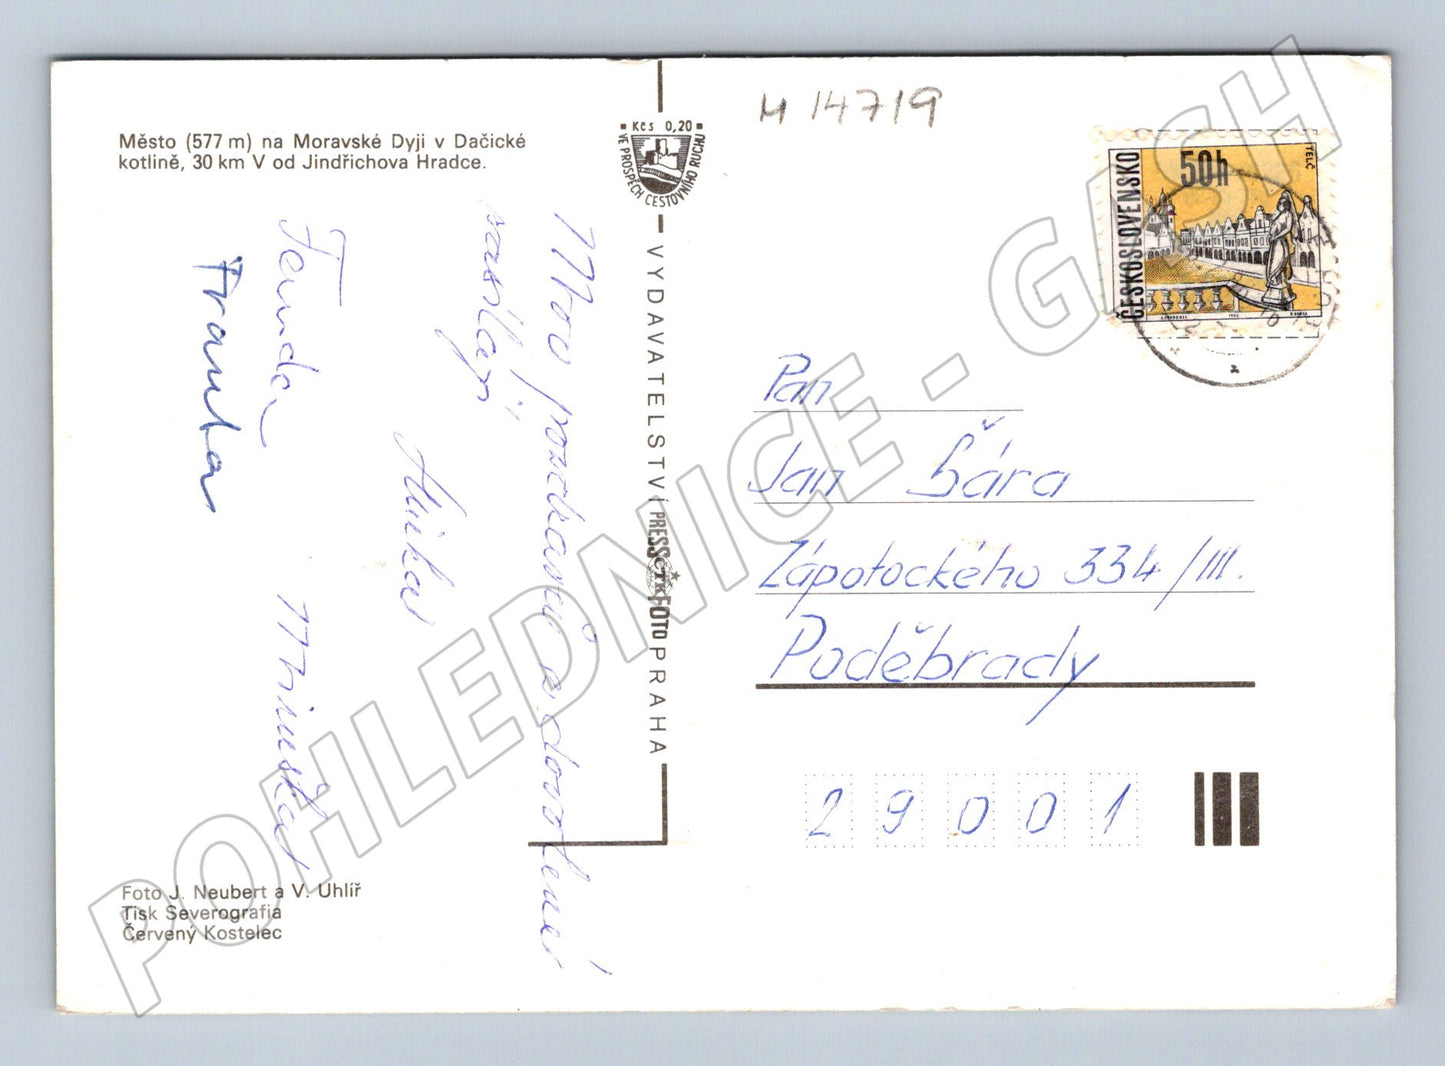 Město (577 m) na Moravské Dyji v Dačické
kotlině, 30 km V od Jindřichova Hradce.
Moc pozdravů z dovolené
zasílají
Mirka
Fenda
Franta
Foto J. Neubert a V. Uhlíř
Tisk Severografia
Červený Kostelec
Kčs 0,20
VE PROSPĚCH CESTOVNÍHO RUCHU
VYDAVATELSTVÍ PRESSFOTO PRAHA
ČTK
M 14719
ČESKOSLOVENSKO
50h
TELČ
Pan
Jan Šára
Zápotockého 334/III.
Poděbrady
29001
POHLEDNICE - GASH